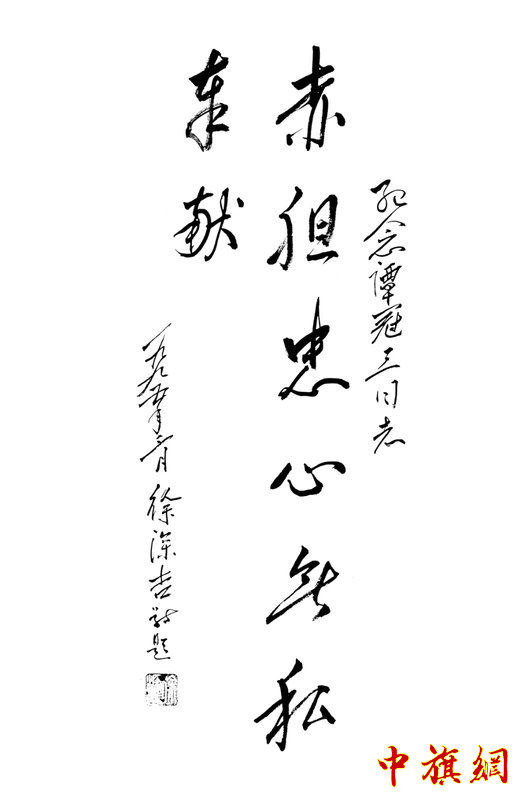 纪念谭冠三同志
赤胆忠心无私
奉献
一九九五年三月徐深吉敬题
中旗網